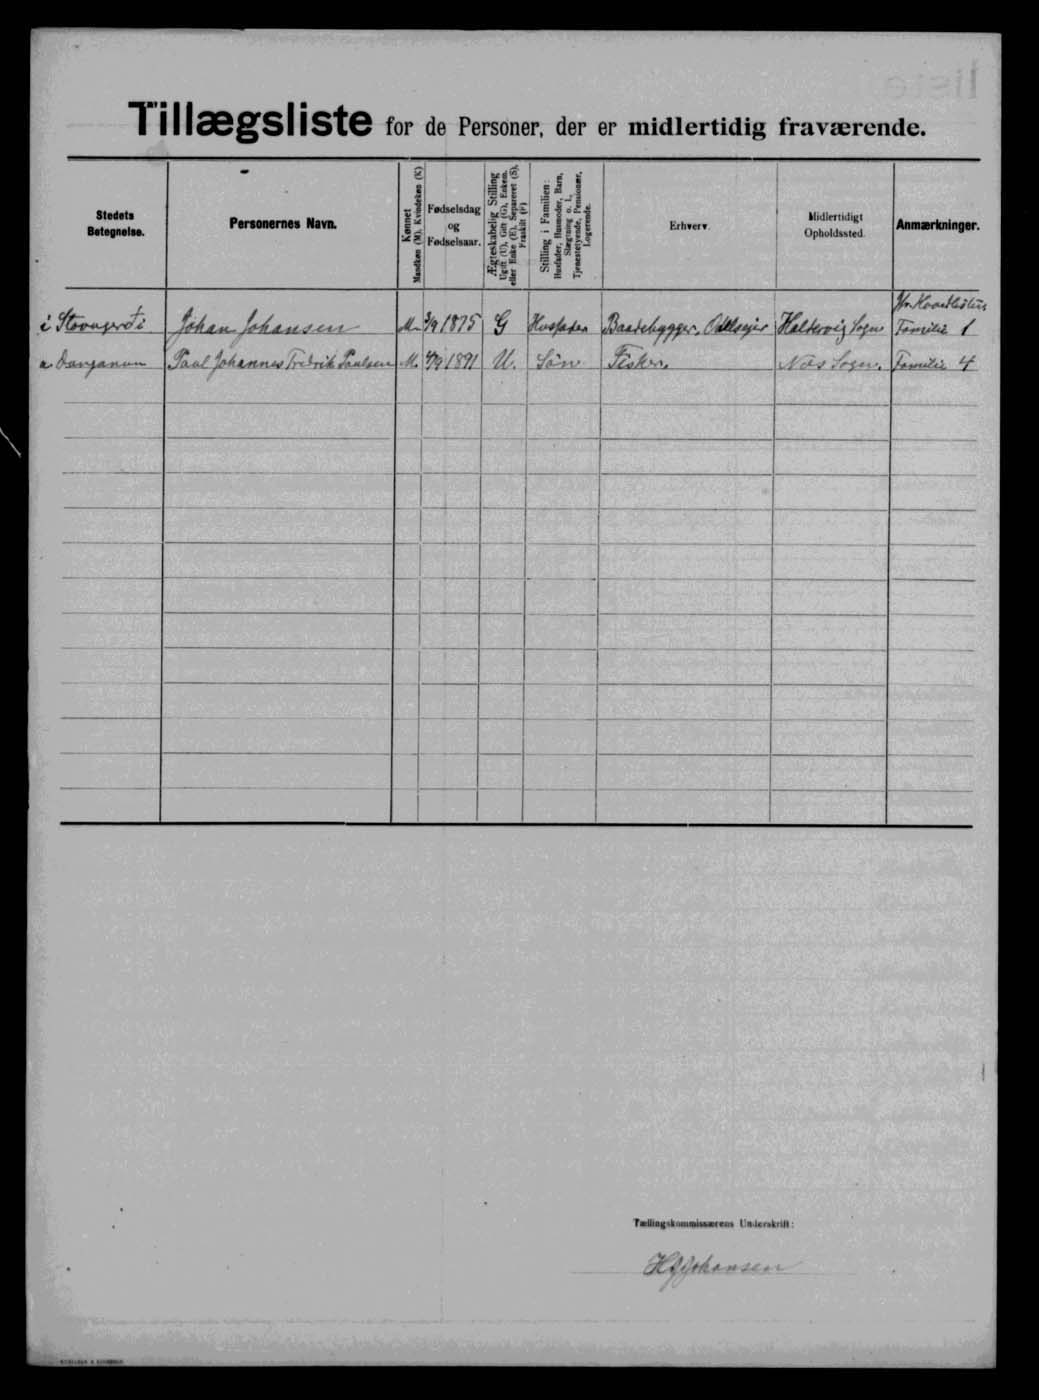 Tillægsliste for de Personer, der er midlertidig fraværende.
Stedets Betegnelse.
Personernes Navn.
Kønnet
Mandkøn (M). Kvindekøn (K)
Fødselsdag
og
Fødselsaar.
Ægteskabelig Stilling
Ugift (U), Gift (G), Enkem.
eller Enke (E), Separeret (S),
Fraskilt (F)
Stilling i Familien:
Husfader, Husmoder, Barn,
Slægtning o. l.,
Tjenestetyende, Pensionær,
Logerende.
Erhverv.
Midlertidigt
Opholdssted.
Anmærkninger.
i Stovugerði Johan Johansen M. 3/9 1875 G Husfader Baadebygger, Odelsejer Haldervig Sogn Familie 1
a Danganum Paul Johannes Fredrik Paulsen M. 4/9 1891 U. Søn Fisker. Næs Sogn. Familie 4
Tællingskommissærens Underskrift:
HJJohansen